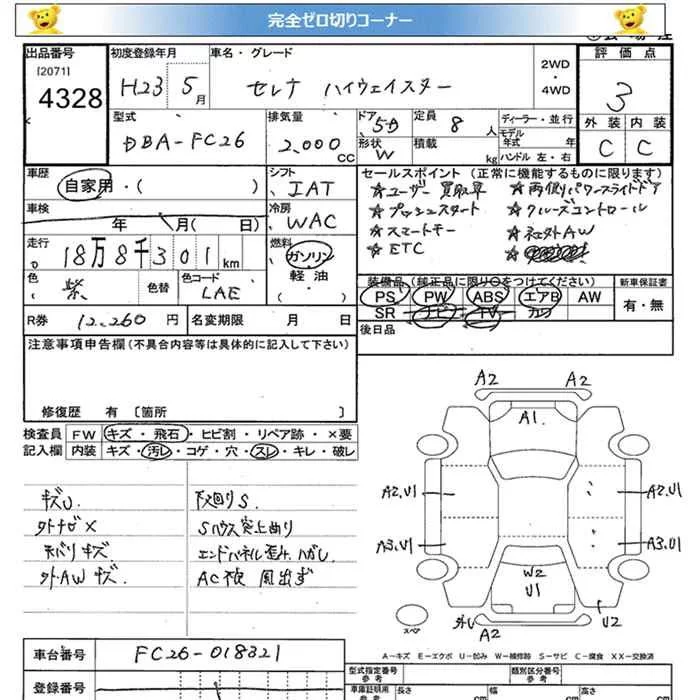 完全ゼロ切りコーナー
出品番号
[2071]
4328
初度登録年月
H23 5月
車名・グレード
セレナ ハイウェイスター
2WD
・
4WD
評価点
3
外装 内装
C C
型式
DBA-FC26
排気量
2,000 CC
ドア 5D
形状 W
定員 8 人
積載 kg
ディーラー・並行
モデル年式 年
ハンドル 左・右
車歴
自家用・( )
シフト
IAT
車検
年 月( 日)
冷房
WAC
走行
18万8千301km
燃料
ガソリン
軽油
( )
色
紫
色替
色コード
LAE
セールスポイント(正常に機能するものに限ります)
☆ユーザー買取車 ☆両側パワースライドドア
☆プッシュスタート ☆クルーズコントロール
☆スマートキー ☆社外AW
☆ETC
装備品(純正品に限り○をつけてください)
PS PW ABS エアB AW
SR ナビ TV カワ
新車保証書
有・無
R券 12,260円
名変期限 月 日
後日品
注意事項申告欄(不具合内容等は具体的に記入して下さい)
修復歴 有〔箇所 〕
検査員記入欄
FW キズ・飛石・ヒビ割・リペア跡・×要
内装 キズ・汚レ・コゲ・穴・スレ・キレ・破レ
キズU. 下回りS.
外ナビ× Sハウス突上あり
内バリキズ エンドパネル歪み、ハガし
外AWキズ. AC後 風出ず
A2 A2
A1
A2.U1 A2.U1
A3.U1 A3.U1
W2
U1
U2
外し
A2
スペア
A-キズ E-エクボ U-凹み W-補修跡 S-サビ C-腐食 XX-交換済
車台番号 FC26-018321
登録番号
型式指定番号
参考
類別区分番号
参考
車庫証明用
参考
長さ cm
幅 cm
高さ cm